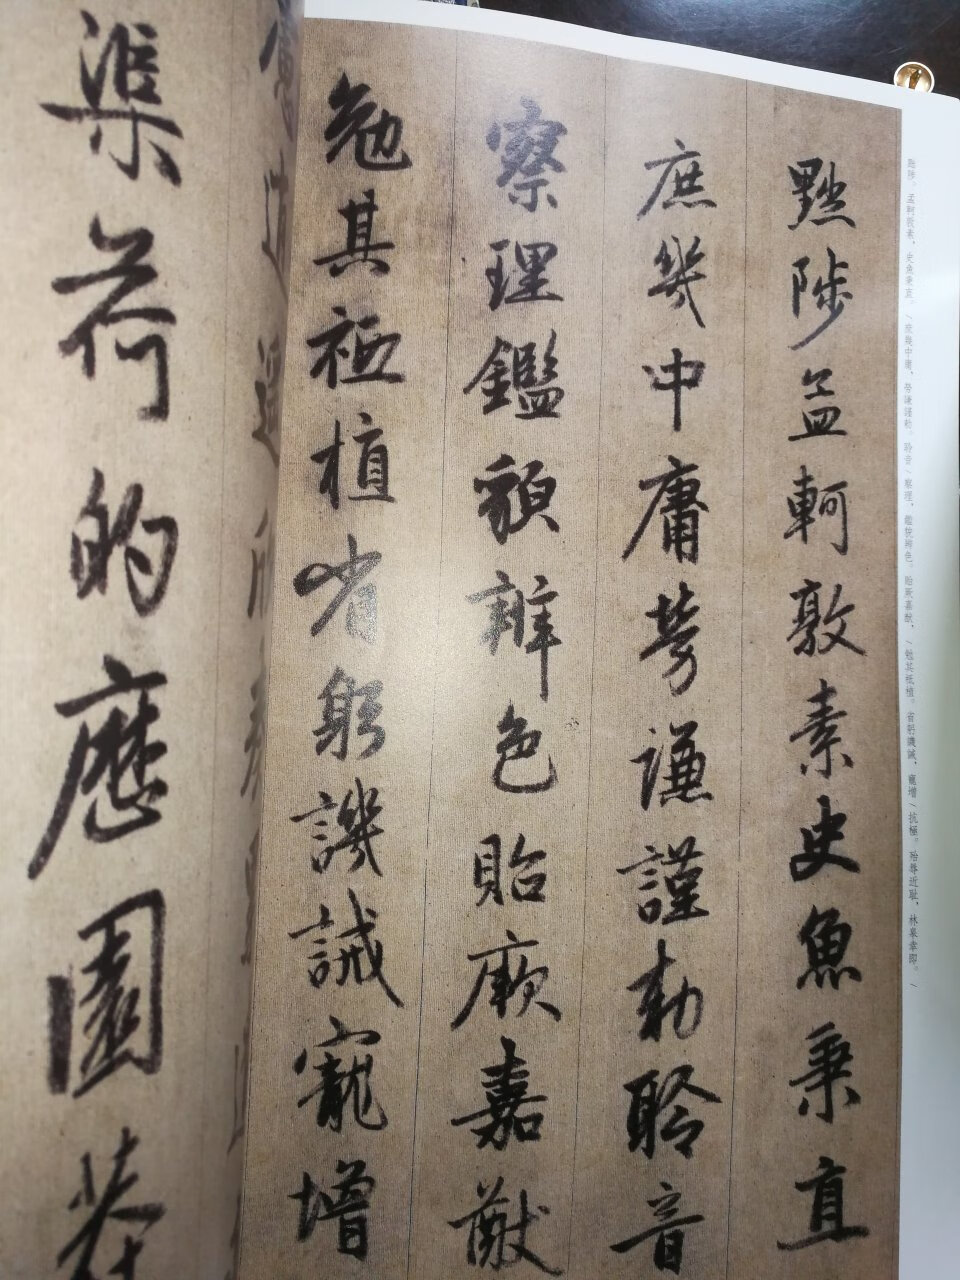 黜陟孟軻敦素史魚秉直
庶幾中庸勞謙謹勅聆音
察理鑑貌辨色貽厥嘉猷
勉其祗植省躬譏誡寵增
渠荷的歷園莽
黜陟。孟軻敦素，史魚秉直。/庶幾中庸，勞謙謹勑。聆音/察理，鑑貌辨色。貽厥嘉猷，/勉其祗植。省躬譏誡，寵增/抗極。殆辱近耻，林皋幸即。/